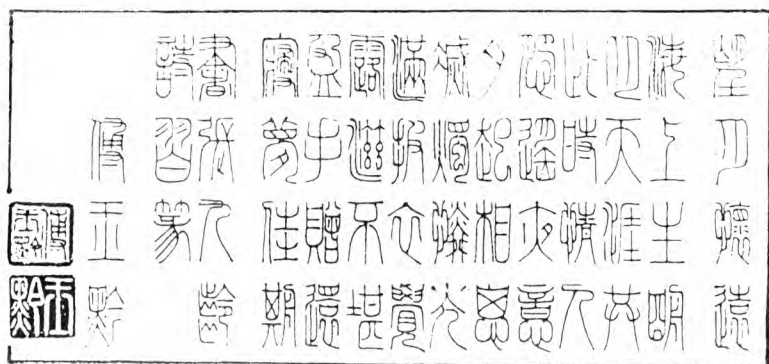 望月懷遠
海上生明
月天涯共
此時情人
怨遙夜竟
夕起相思
滅燭憐光
滿披衣覺
露滋不堪
盈手贈還
寢夢佳期
書張九齡
詩習篆
傅玉黔
玉黔